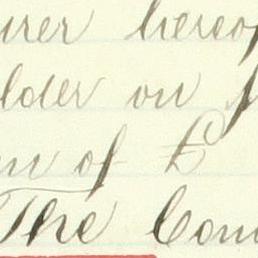 urer hereof
lder on
m of £
The Com